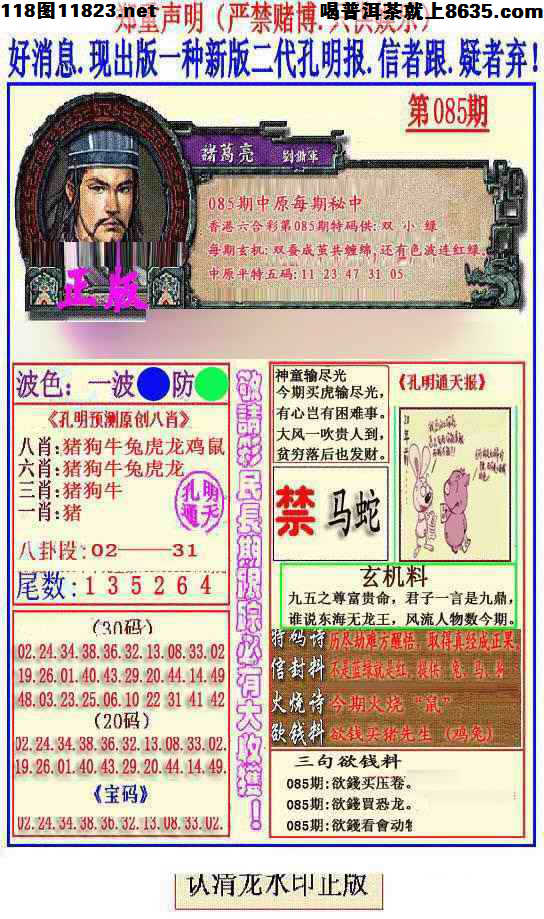 118图11823.net
喝普洱茶就上8635.com
郑重声明(严禁赌博.
好消息.现出版一种新版二代孔明报.信者跟.疑者弃!
第085期
諸葛亮
085期中原每期秘中
香港六合彩第085期特码供:双 小 绿
每期玄机:双蚕成茧共缠绵,还有色波连红绿.
中原平特五码:11 23 47 31 05
正版
波色:一波 防
《孔明预测原创八肖》
八肖:猪狗牛兔虎龙鸡鼠
六肖:猪狗牛兔虎龙
三肖:猪狗牛
一肖:猪
孔明
通天
八卦段:02———31
尾数:1 3 5 2 6 4
(30码)
02.24.34.38.36.32.13.08.33.02
19.26.01.40.43.29.20.44.14.49
48.03.23.25.06.10 22 31 41 42
(20码)
02.24.34.38.36.32.13.08.33.02.
19.26.01.40.43.29.20.44.14.49.
《宝码》
02.24.34.38.36.32.13.08.33.02.
敬請彩民長期跟踪必有大收獲!
神童输尽光
今期买虎输尽光,
有心岂有困难事。
大风一吹贵人到,
贫穷落后也发财。
《孔明通天报》
禁
马蛇
玄机料
九五之尊富贵命,君子一言是九鼎,
谁说东海无龙王,风流人物数今期。
特码诗 历尽劫难方醒悟,取得真经成正果
信封料 不是蓝绿就是红,提供:兔、马、
火烧诗 今期火烧“鼠”
欲钱料 欲钱买猪先生(鸡兔)
三句欲钱料
085期:欲錢买压卷。
085期:欲錢買恐龙。
085期:欲錢看會动
认清龙水印正版